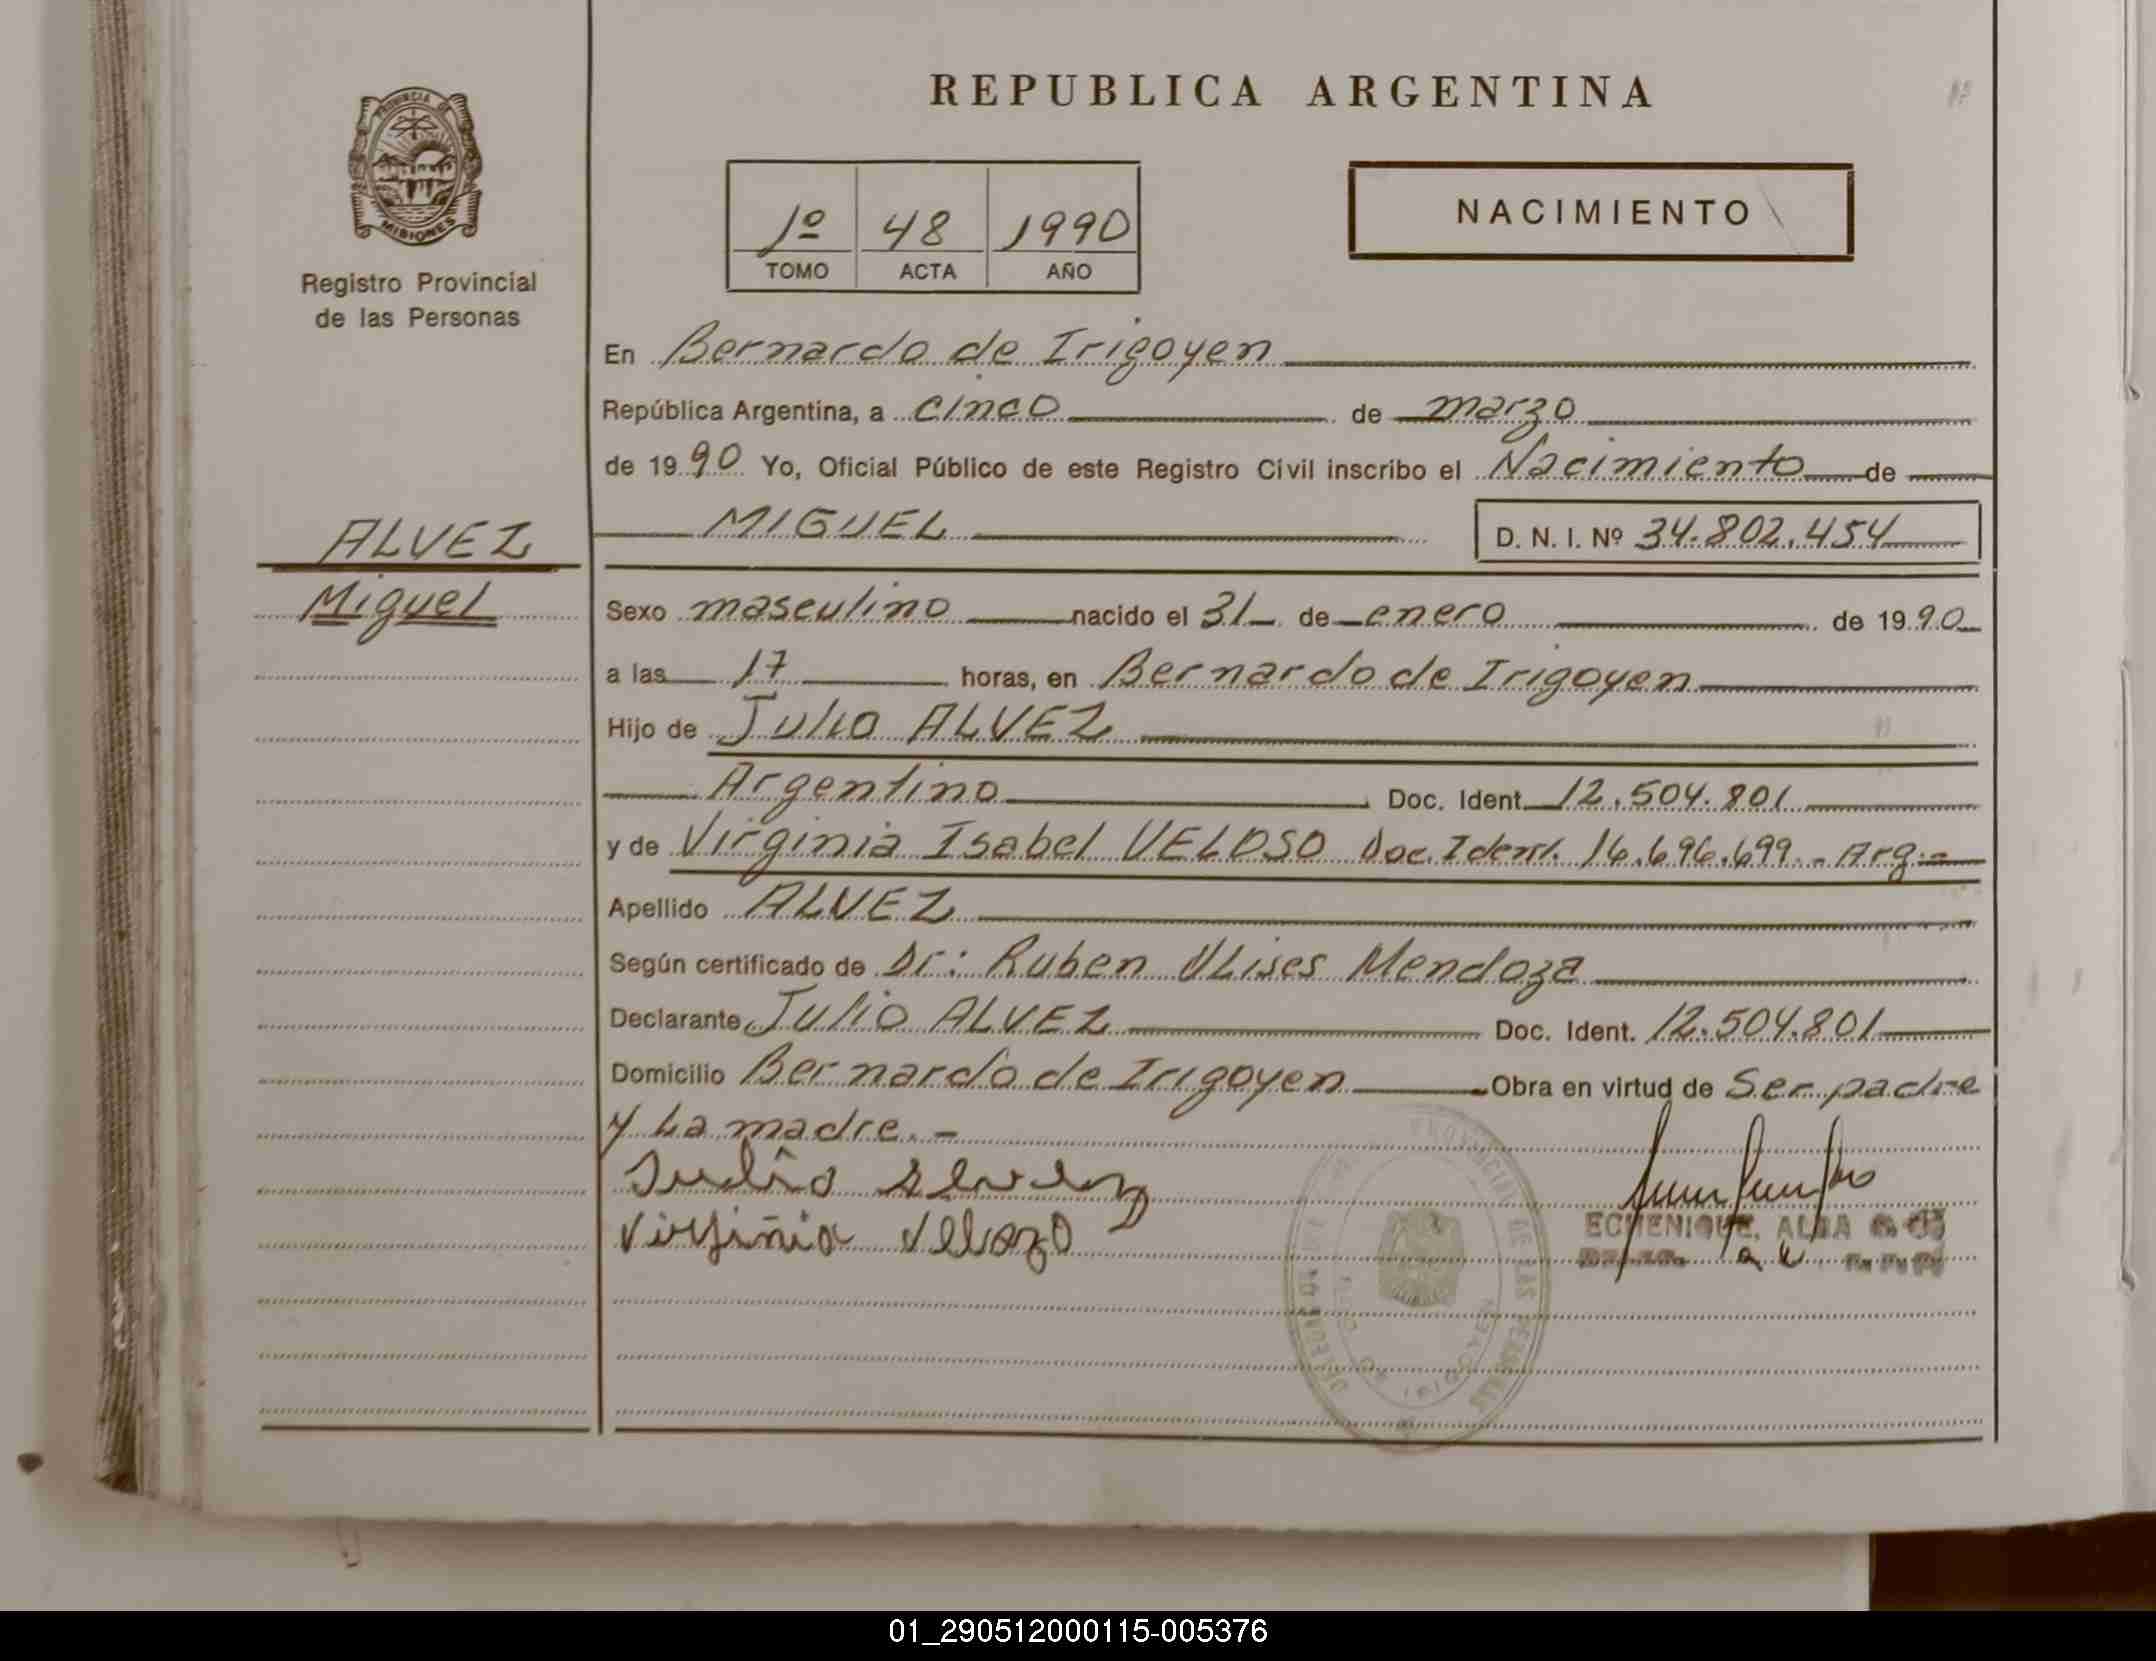 REPUBLICA ARGENTINA
PROVINCIA DE
MISIONES
Registro Provincial
de las Personas
1º 48 1990
TOMO ACTA AÑO
NACIMIENTO
En Bernardo de Irigoyen
República Argentina, a cinco de marzo
de 1990 Yo, Oficial Público de este Registro Civil inscribo el Nacimiento de
ALVEZ
Miguel
MIGUEL D. N. I. Nº 34.802.454
Sexo masculino nacido el 31 de enero de 1990
a las 17 horas, en Bernardo de Irigoyen
Hijo de Julio ALVEZ
Argentino Doc. Ident. 12.504.801
y de Virginia Isabel VELOSO Doc. Ident. 16.696.699.- Arg.-
Apellido ALVEZ
Según certificado de Dr: Ruben Ulises Mendoza
Declarante Julio ALVEZ Doc. Ident. 12.504.801
Domicilio Bernardo de Irigoyen Obra en virtud de Ser padre
y La madre.-
Julio Alvez
Virginia Velozo
ECHENIQUE, ALBA
PROVINCIAL DE LAS PERSONAS
DE IRIGOYEN
01_290512000115-005376